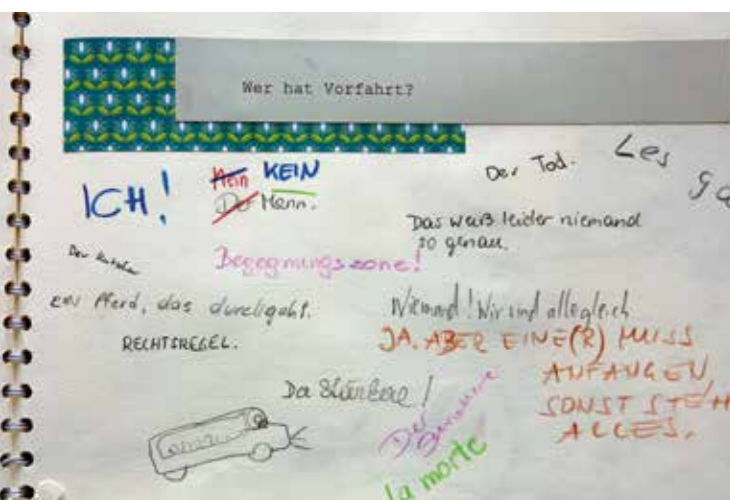 Wer hat Vorfahrt?
ICH!
Mein KEIN
Der Mann.
Der Tod.
Les
Das weiß leider niemand
so genau.
Begegnungszone!
Ein Pferd, das durchgeht.
RECHTSREGEL.
Niemand! Wir sind alle gleich
JA. ABER EINE(R) MUSS
ANFANGEN,
SONST STEH
ALLES.
Da Stärkere!
Der
la morte